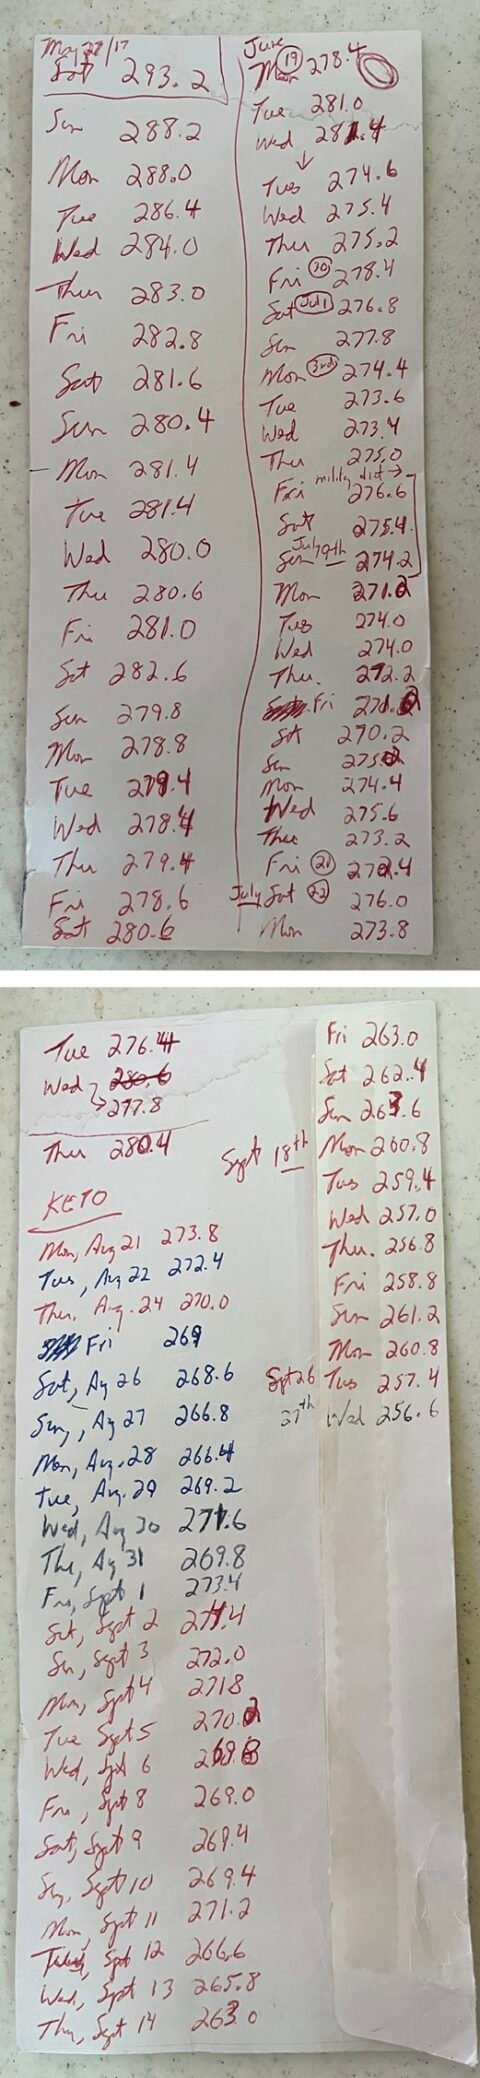 May 27/17
Sat 293.2
Sun 288.2
Mon 288.0
Tue 286.4
Wed 284.0
Thur 283.0
Fri 282.8
Sat 281.6
Sun 280.4
Mon 281.4
Tue 281.4
Wed 280.0
Thu 280.6
Fri 281.0
Sat 282.6
Sun 279.8
Mon 278.8
Tue 279.4
Wed 278.4
Thu 279.4
Fri 278.6
Sat 280.6
June
Mon 19 278.4
Tue 281.0
Wed 281.4
Tues 274.6
Wed 275.4
Thu 275.2
Fri 278.4
Sat July 1 276.8
Sun 277.8
Mon 3rd 274.4
Tue 273.6
Wed 273.4
Thu 275.0
Fri 276.6
Sat 275.4
Sun July 9th 274.2
Mon 271.2
Tues 274.0
Wed 274.0
Thu. 272.2
Fri
Sat 270.2
Sun
Mon 274.4
Wed 275.6
Thu 273.2
Fri 21 272.4
July Sat 22 276.0
Mon 273.8
Tue 276.4
Wed 280.6
277.8
Thu 280.4
KETO
Mon, Aug 21 273.8
Tues, Aug 22 272.4
Thu, Aug. 24 270.0
Fri 269
Sat, Ag 26 268.6
Sun, Ag 27 266.8
Mon, Aug. 28 266.4
Tue, Aug. 29 269.2
Wed, Aug 30 271.6
Thu, Ag 31 269.8
Fri, Sept 1 273.4
Sat, Sept 2 271.4
Sun, Sept 3 272.0
Mon, Sept 4 271.8
Tue Sept 5 270.2
Wed, Sept 6 268.8
Fri, Sept 8 269.0
Sat, Sept 9 269.4
Sun, Sept 10 269.4
Mon, Sept 11 271.2
Tues, Sept 12 266.6
Wed, Sept 13 265.8
Thu, Sept 14 263.0
Fri 263.0
Sat 262.4
Sun 263.6
Sept 18th Mon 260.8
Tues 259.4
Wed 257.0
Thu. 256.8
Fri 258.8
Sun 261.2
Mon 260.8
Sept 26 Tues 257.4
27th Wed 256.6